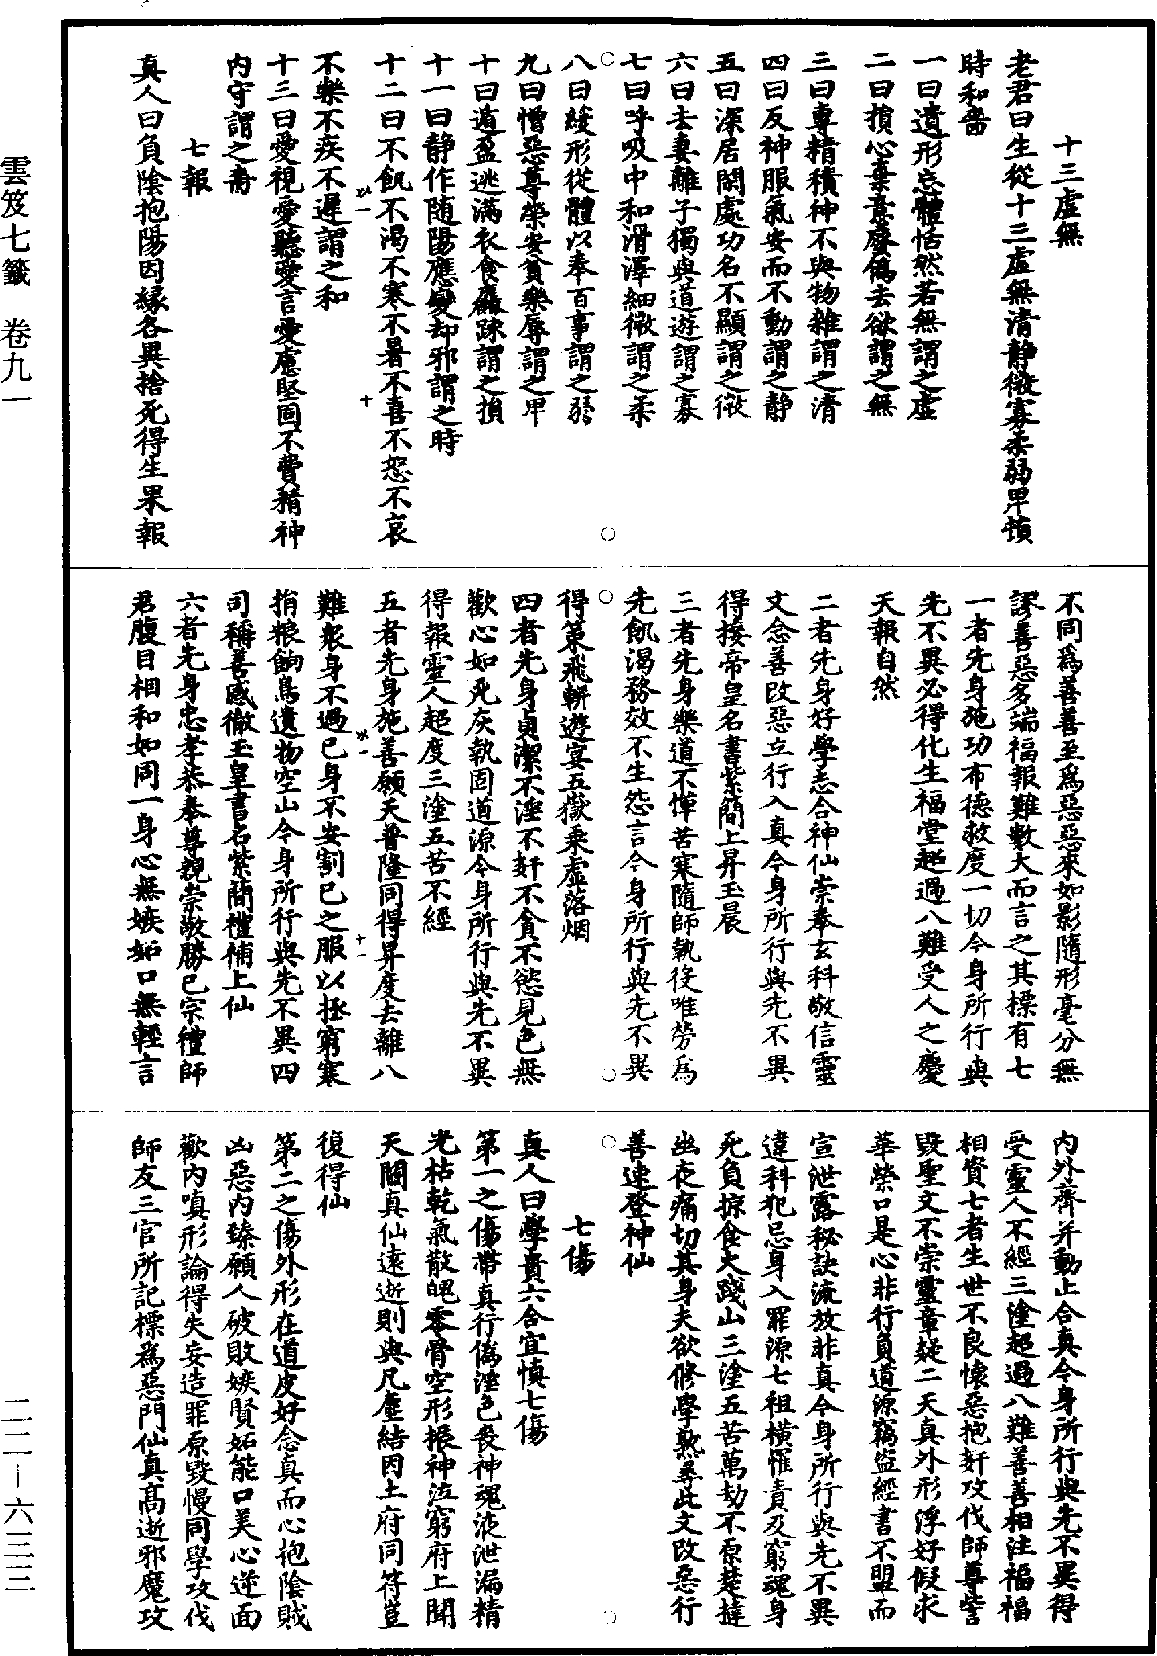 十三虛無
老君曰生從十三虛無清静微寡柔弱卑損
時和嗇
一曰遺形忘體恬然若無謂之虛
二曰損心棄意廢僞去欲謂之無
三曰專精積神不與物雜謂之清
四曰反神服氣安而不動謂之静
五曰深居閑處功名不顯謂之微
六曰去妻離子獨與道遊謂之寡
七曰呼吸中和滑澤細微謂之柔
八曰緩形從體以奉百事謂之弱
九曰憎惡尊榮安貧樂辱謂之卑
十曰遁盈逃滿衣食麤踈謂之損
十一曰静作随陽應變却邪謂之時
十二曰不飢不渴不寒不暑不喜不怒不哀
不樂不疾不遲謂之和
十三曰愛視愛聽愛言愛慮堅固不費精神
内守謂之嗇
七報
真人曰負陰抱陽因緣各異捨死得生果報
不同爲善善至爲惡惡來如影隨形毫分無
謬善惡多端福報難數大而言之其標有七
一者先身施功布德救度一切今身所行與
先不異必得化生福堂超過八難受人之慶
天報自然
二者先身好學志合神仙崇奉玄科敬信靈
文念善改惡立行入真今身所行與先不異
得接帝皇名書紫簡上昇玉晨
三者先身樂道不憚苦寒隨師執役唯勞爲
先飢渴務效不生怨言今身所行與先不異
得策飛軿遊宴五嶽乘虛落烟
四者先身貞潔不淫不奸不貪不慾見色無
歡心如死灰執固道源今身所行與先不異
得報靈人超度三塗五苦不經
五者先身施善願天普隆同得昇度去離八
難裂身不過已身不安割已之服以拯窮寒
捐粮餉鳥遺物空山今身所行與先不異四
司稱善感徹玉皇書名紫簡禮補上仙
六者先身忠孝恭奉尊親崇敬勝已宗禮師
君腹目相和如同一身心無嫉妬口無輕言
内外齊并動止合真今身所行與先不異得
受靈人不經三塗超過八難善善相注福福
相資七者生世不良懷惡抱奸攻伐師尊訾
毀聖文不崇靈章疑二天真外形浮好假求
華榮口是心非行負道源竊盜經書不盟而
宣泄露秘訣流放非真今身所行與先不異
違科犯忌身入罪源七祖横罹責及窮魂身
死負掠食火踐山三塗五苦萬劫不原楚撻
幽夜痛切其身夫欲修學熟尋此文改惡行
善速登神仙
七傷
真人曰學貴六合宜慎七傷
第一之傷帶真行僞淫色喪神魂液泄漏精
光枯乾氣散魄零骨空形振神泣窮府上聞
天關真仙遠逝則與凡塵結因土府同符豈
復得仙
第二之傷外形在道皮好念真而心抱陰賊
凶惡内臻願人破敗嫉賢妬能口美心逆面
歡内嗔形論得失妄造罪原毀慢同學攻伐
師友三官所記標爲惡門仙真高逝邪魔攻
雲笈七籤　卷九一
二二—六三三
以一
十
以一
十一